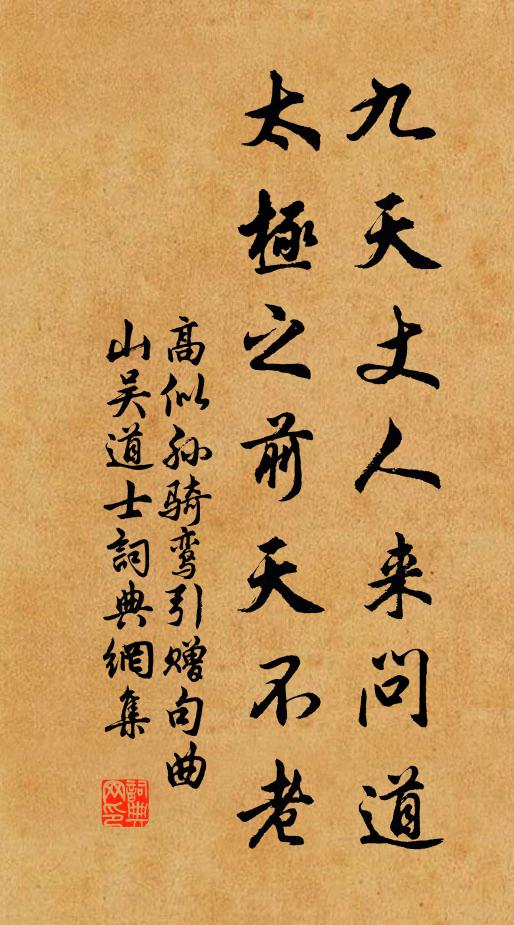 九天丈人来問道
太極之前天不老
高似孙骑鸾引赠句曲
山吴道士詞典網集
詞典
网印